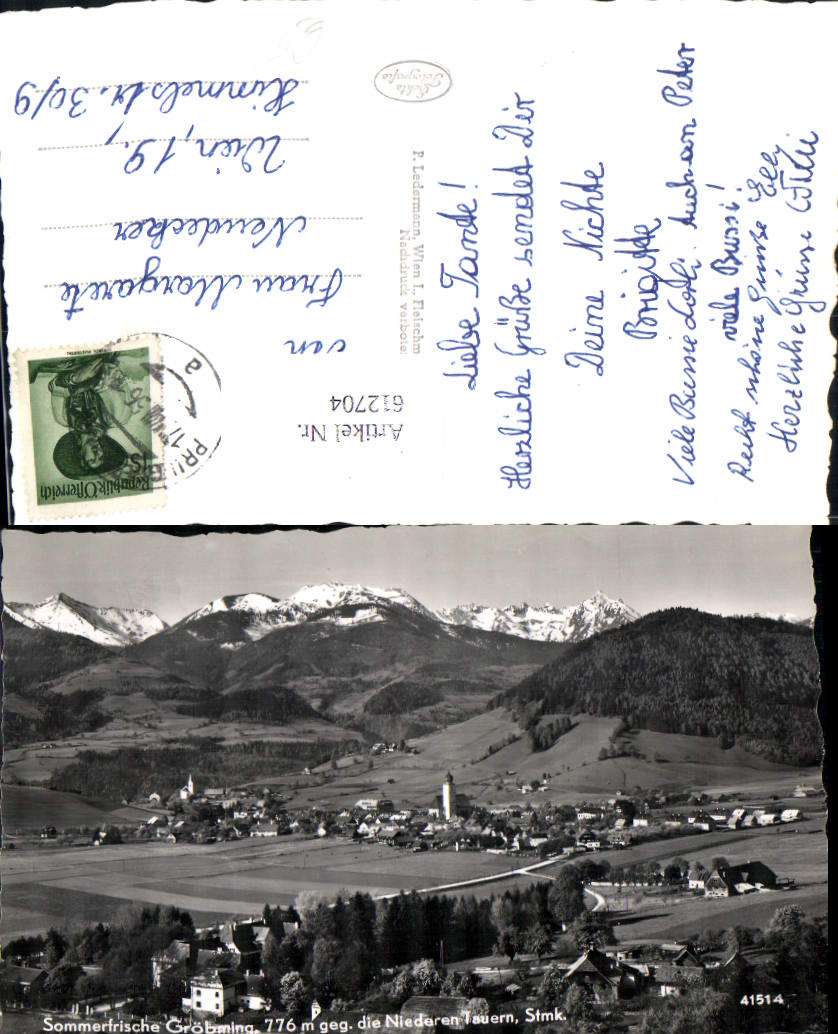 Liebe Tante!
Herzliche Grüße sendet Dir
Deine Nichte
Brigitte
Viele Bussie Lotti. Auch an Peter
viele Bussi!
Recht schöne Grüße Elly.
Herzliche Grüsse Willi
Echte
Fotografie
P. Ledermann, Wien I., Fleischm
Nachdruck verboten
Artikel Nr.
612704
Republik Österreich
1S
a
Frau Margarete
Neudecker
Wien, 19.,
Himmelstr. 30/9
Sommerfrische Gröbming, 776 m geg. die Niederen Tauern, Stmk.
41514